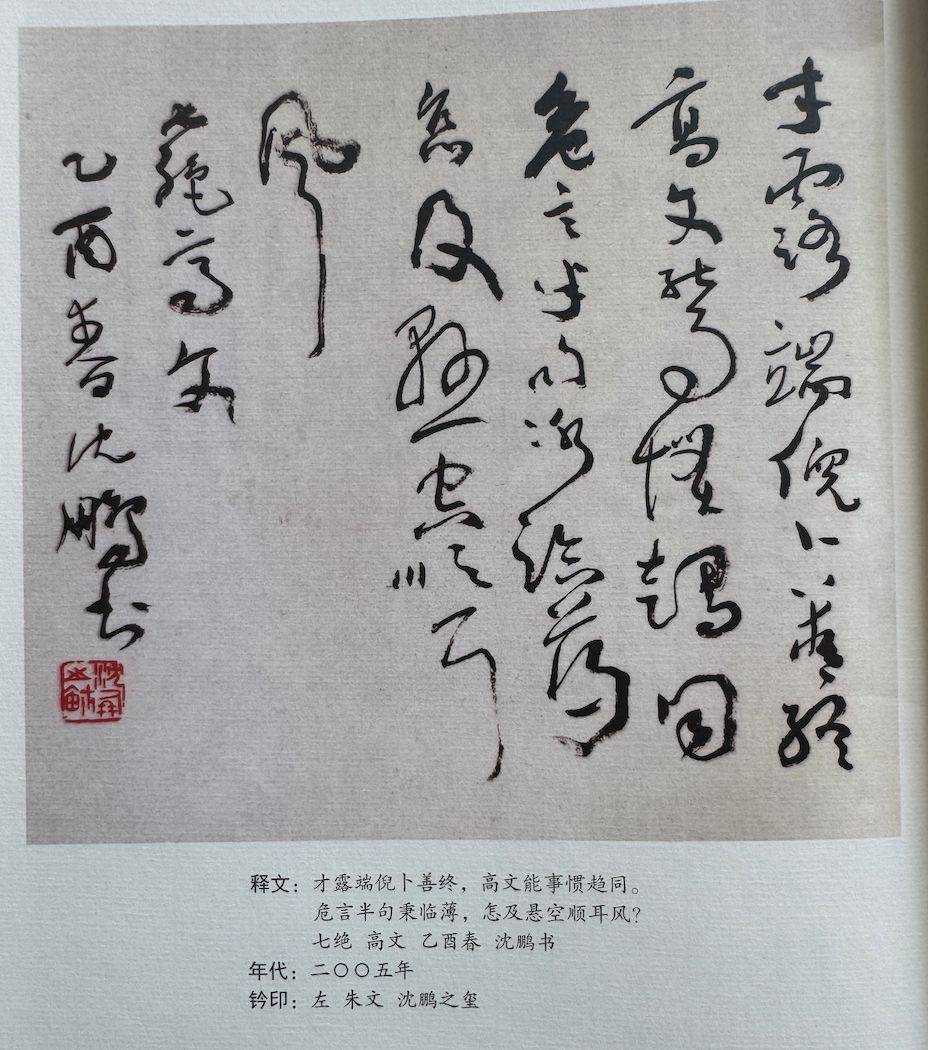 才露端倪卜善終
高文能事慣趨同
危言半句冰臨薄
怎及懸空順耳
風
七絕高文
乙酉春沈鵬書
沈鵬之鉨
释文：才露端倪卜善终，高文能事惯趋同。
危言半句秉临薄，怎及悬空顺耳风？
七绝 高文 乙酉春 沈鹏书
年代：二〇〇五年
钤印：左 朱文 沈鹏之玺